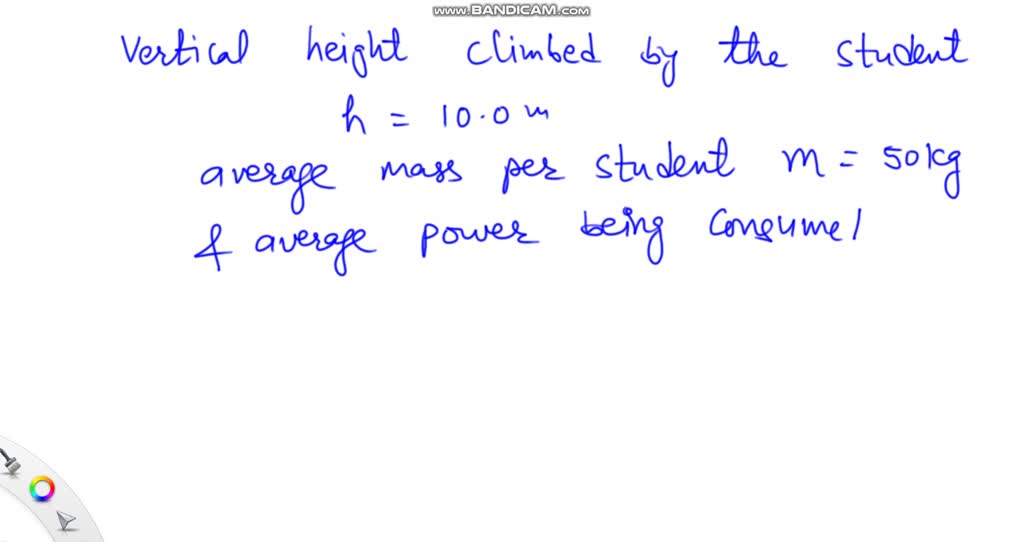 www.BANDICAM.com
Vertical height climbed by the student
h = 10.0 m
average mass per student m = 50kg
& average power being consume